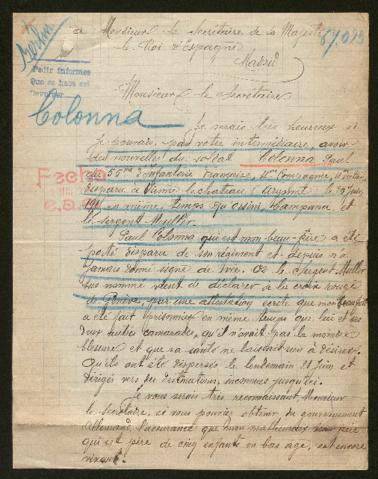 a Monsieur le Secrétaire de sa Majesté
le Roi d'Espagne
Madrid
Berlin
Pedir informes
Colonna
Monsieur le Secrétaire
Je serais très heureux si
je pouvais, par votre intermédiaire, avoir
des nouvelles du soldat Colonna Paul
du 55me d'Infanterie Française, Compagnie,
disparu à Vienne le chateau (Argonne) le
en même temps que Campana et
le sergent Muller.
Paul Colonna qui est mon beau-frère a été
porté disparu de son régiment et depuis n'a
jamais donné signe de vie. Or le Sergent Muller
sus nommé vient de déclarer à la croix rouge
de Genève, par une attestation écrite que mon beau-frère
a été fait prisonnier en même temps que lui et ses
deux autres camarades, qu'il n'avait pas la moindre
blessure et que sa santé ne laissait rien à désirer.
Qu'ils ont été dispersés le lendemain Juin et
dirigés vers des destinations inconnues jusqu'ici.
Je vous serais très reconnaissant, Monsieur
le Secrétaire, si vous pouviez obtenir, du gouvernement
Allemand, l'assurance que mon malheureux beau-frère
qui est père de cinq enfants en bas âge, est encore
vivant.